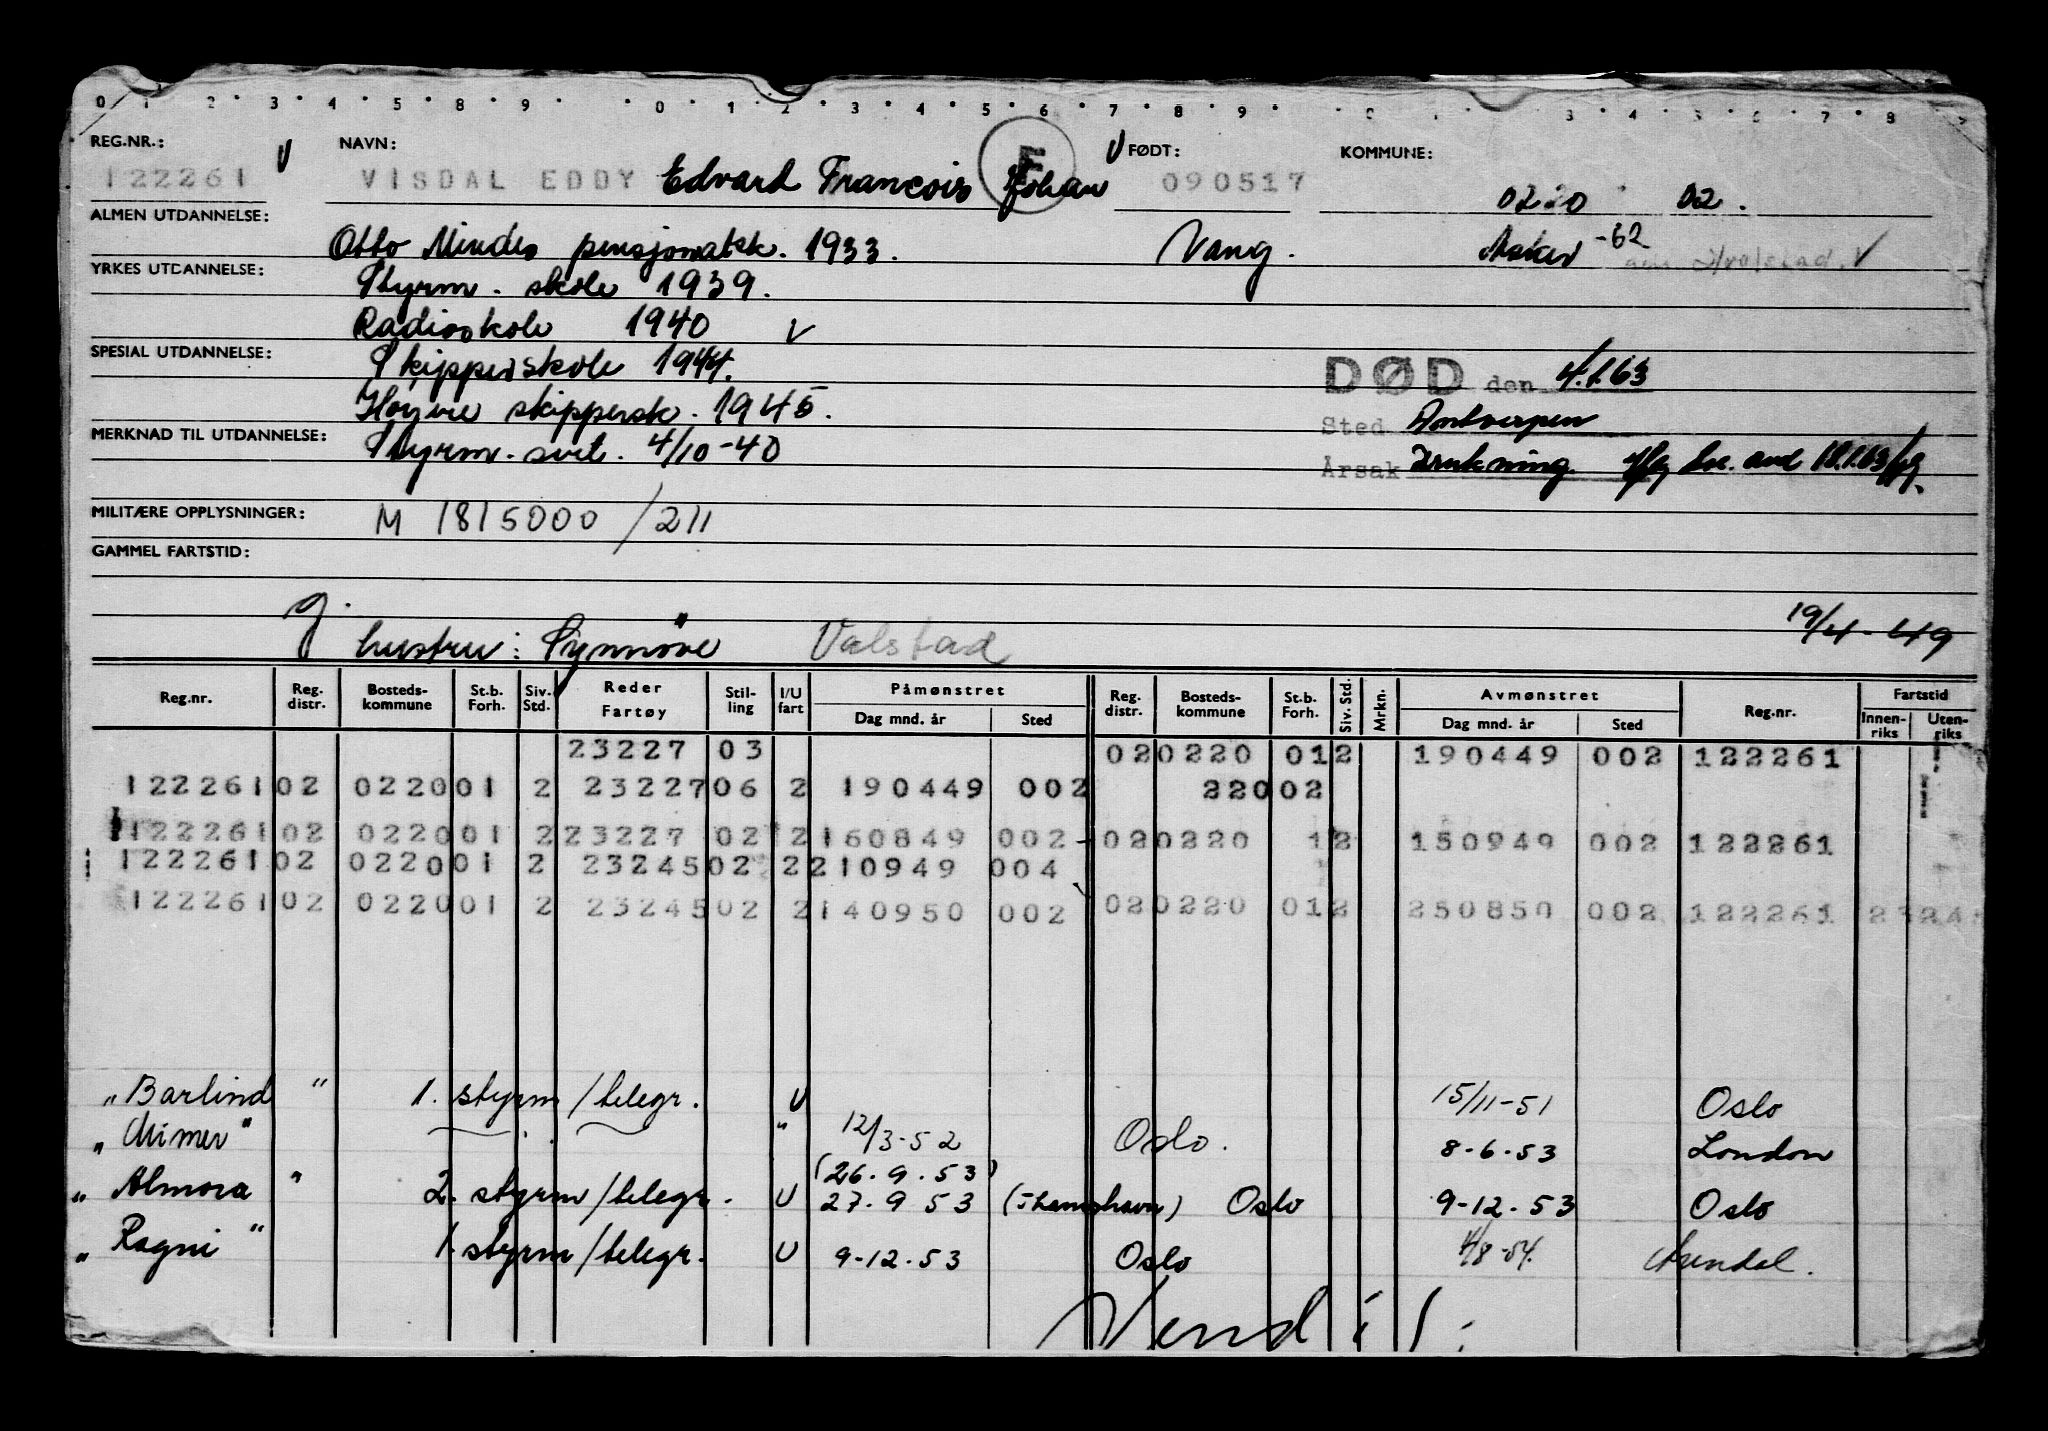 0 1 2 3 4 5 8 9 0 1 2 3 4 5 6 7 8 9 3 4 5 6 7 8
REG.NR.: V NAVN: E V FØDT: KOMMUNE:
122261 VISDAL EDDY Edvard Francois Johan 090517 0220 02.
ALMEN UTDANNELSE: Otto Mindes pensjonatsk. 1933. Vang. Asker -62 Hvalstad. V
YRKES UTDANNELSE: Styrm. skole 1939.
Radioskole 1940 V
SPESIAL UTDANNELSE: Skipperskole 1944. DØD den 4.1.63
Høyere skippersk. 1945. Sted Antwerpen
MERKNAD TIL UTDANNELSE: Styrm. svit. 4/10-40 Årsak Drukning.
MILITÆRE OPPLYSNINGER: M 1815000/211
GAMMEL FARTSTID:
g. 19/4-49
hustru: Synnöve Valstad
Reg.nr. Reg. distr. Bosteds-kommune St.b. Forh. Siv. Std. Reder Fartøy Stil-ling I/U fart Påmønstret Dag mnd. år Sted Reg. distr. Bosteds-kommune St.b. Forh. Siv. Std. Mrkn. Avmønstret Dag mnd. år Sted Reg.nr. Fartstid Innen-riks Uten-riks
23227 03 020220 012 190449 002 122261
122261 02 0220 01 2 23227 06 2 190449 002 22002
122261 02 0220 01 2 23227 02 2 160849 002 020220 12 150949 002 122261
122261 02 0220 01 2 23245 02 2 210949 004
122261 02 0220 01 2 23245 02 2 140950 002 020220 012 250850 002 122261 2324
"Barlind" 1. styrm/telegr. U 15/11-51 Oslo
"Mimer" " 12/3-52 Oslo. 8-6-53 London
(26.9.53)
"Almora" 2. styrm/telegr. U 27.9 53 (Thamshavn) Oslo 9-12.53 Oslo
"Ragni" 1. styrm/telegr. U 9-12.53 Oslo 4/8-54. Arendal.
Vend!